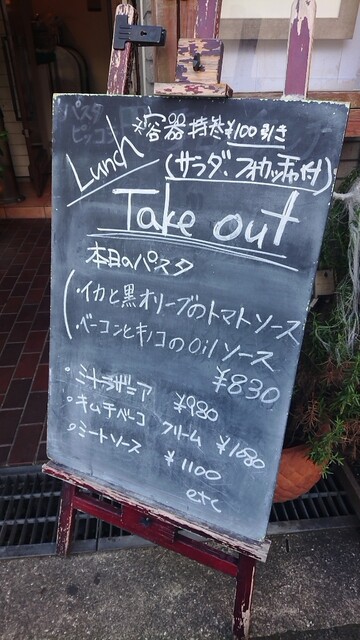 容器持参¥100引き
Lunch
(サラダ、フォカッチャ付)
Take out
本日のパスタ
・イカと黒オリーブのトマトソース
・ベーコンとキノコのOilソース
¥830
・ミートラザニア ¥980
・キムチベーコ クリーム ¥1080
・ミートソース ¥1100
etc